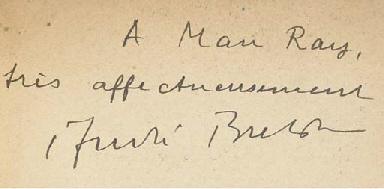 A Man Ray,
très affectueusement
André Breton